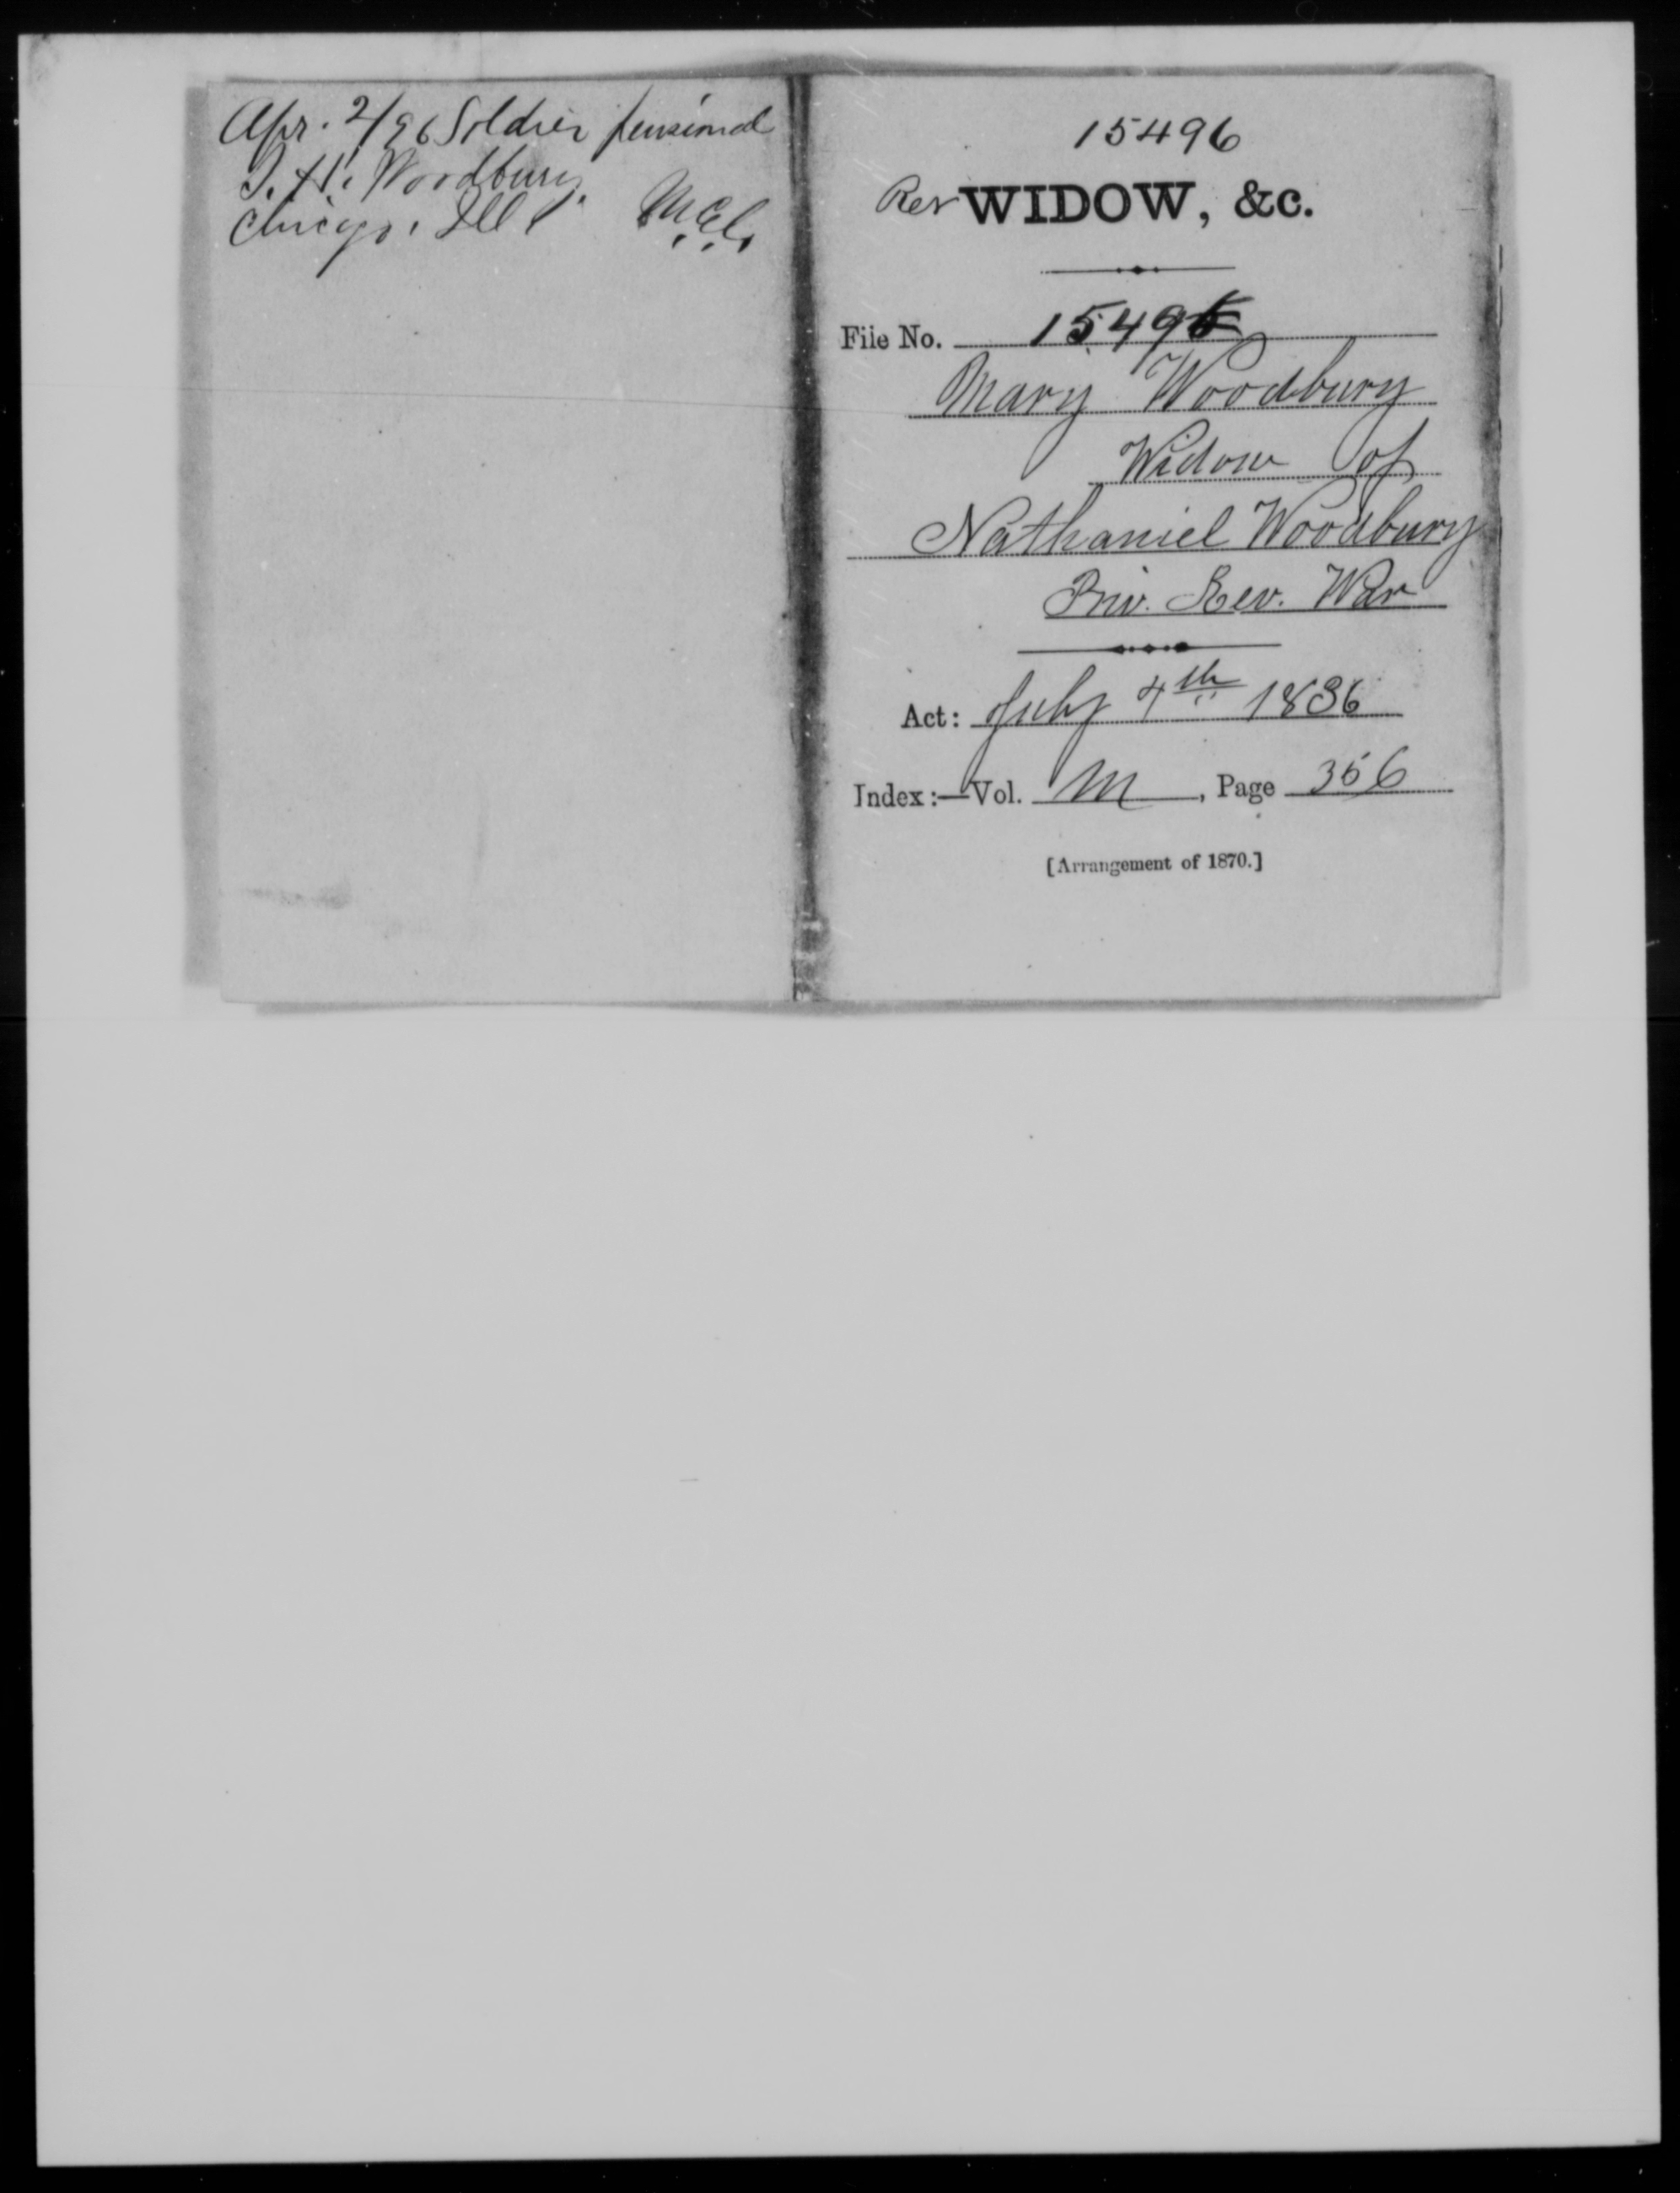 Apr. 2/96 Soldier pensioned
T. H. Woodbury
Chicago, Ill.
M.E.C.
15496
Rev WIDOW, &c.
File No. 15496
Mary Woodbury
Widow of
Nathaniel Woodbury
Priv. Rev. War
Act: July 4th 1836
Index:—Vol. M, Page 356
[Arrangement of 1870.]